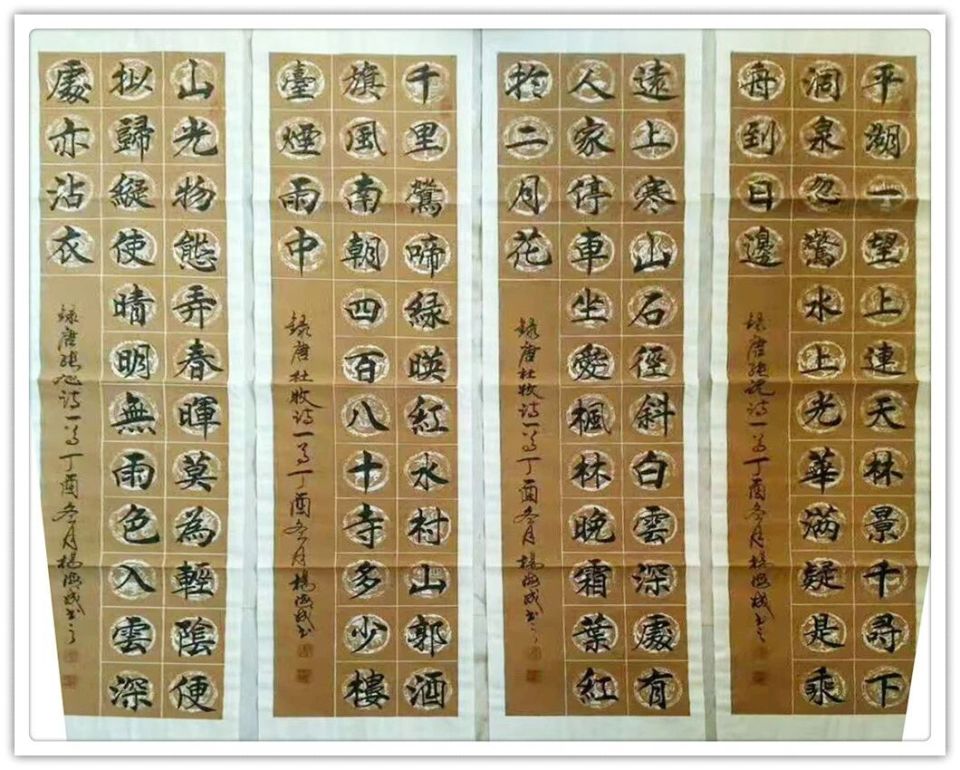 平湖一望上連天林景千尋下
洞泉忽驚水上光華满疑是乘
舟到日邊
録唐張説诗一首丁酉冬月楊海成书之
遠上寒山石徑斜白雲深處有
人家停車坐愛楓林晚霜葉紅
於二月花
録唐杜牧诗一首丁酉冬月楊海成书之
千里鶯啼緑暎紅水村山郭酒
旗風南朝四百八十寺多少樓
臺煙雨中
録唐杜牧诗一首丁酉冬月楊海成书
山光物態弄春暉莫為輕陰便
拟歸縱使晴明無雨色入雲深
處亦沾衣
録唐張旭诗一首丁酉冬月楊海成书之